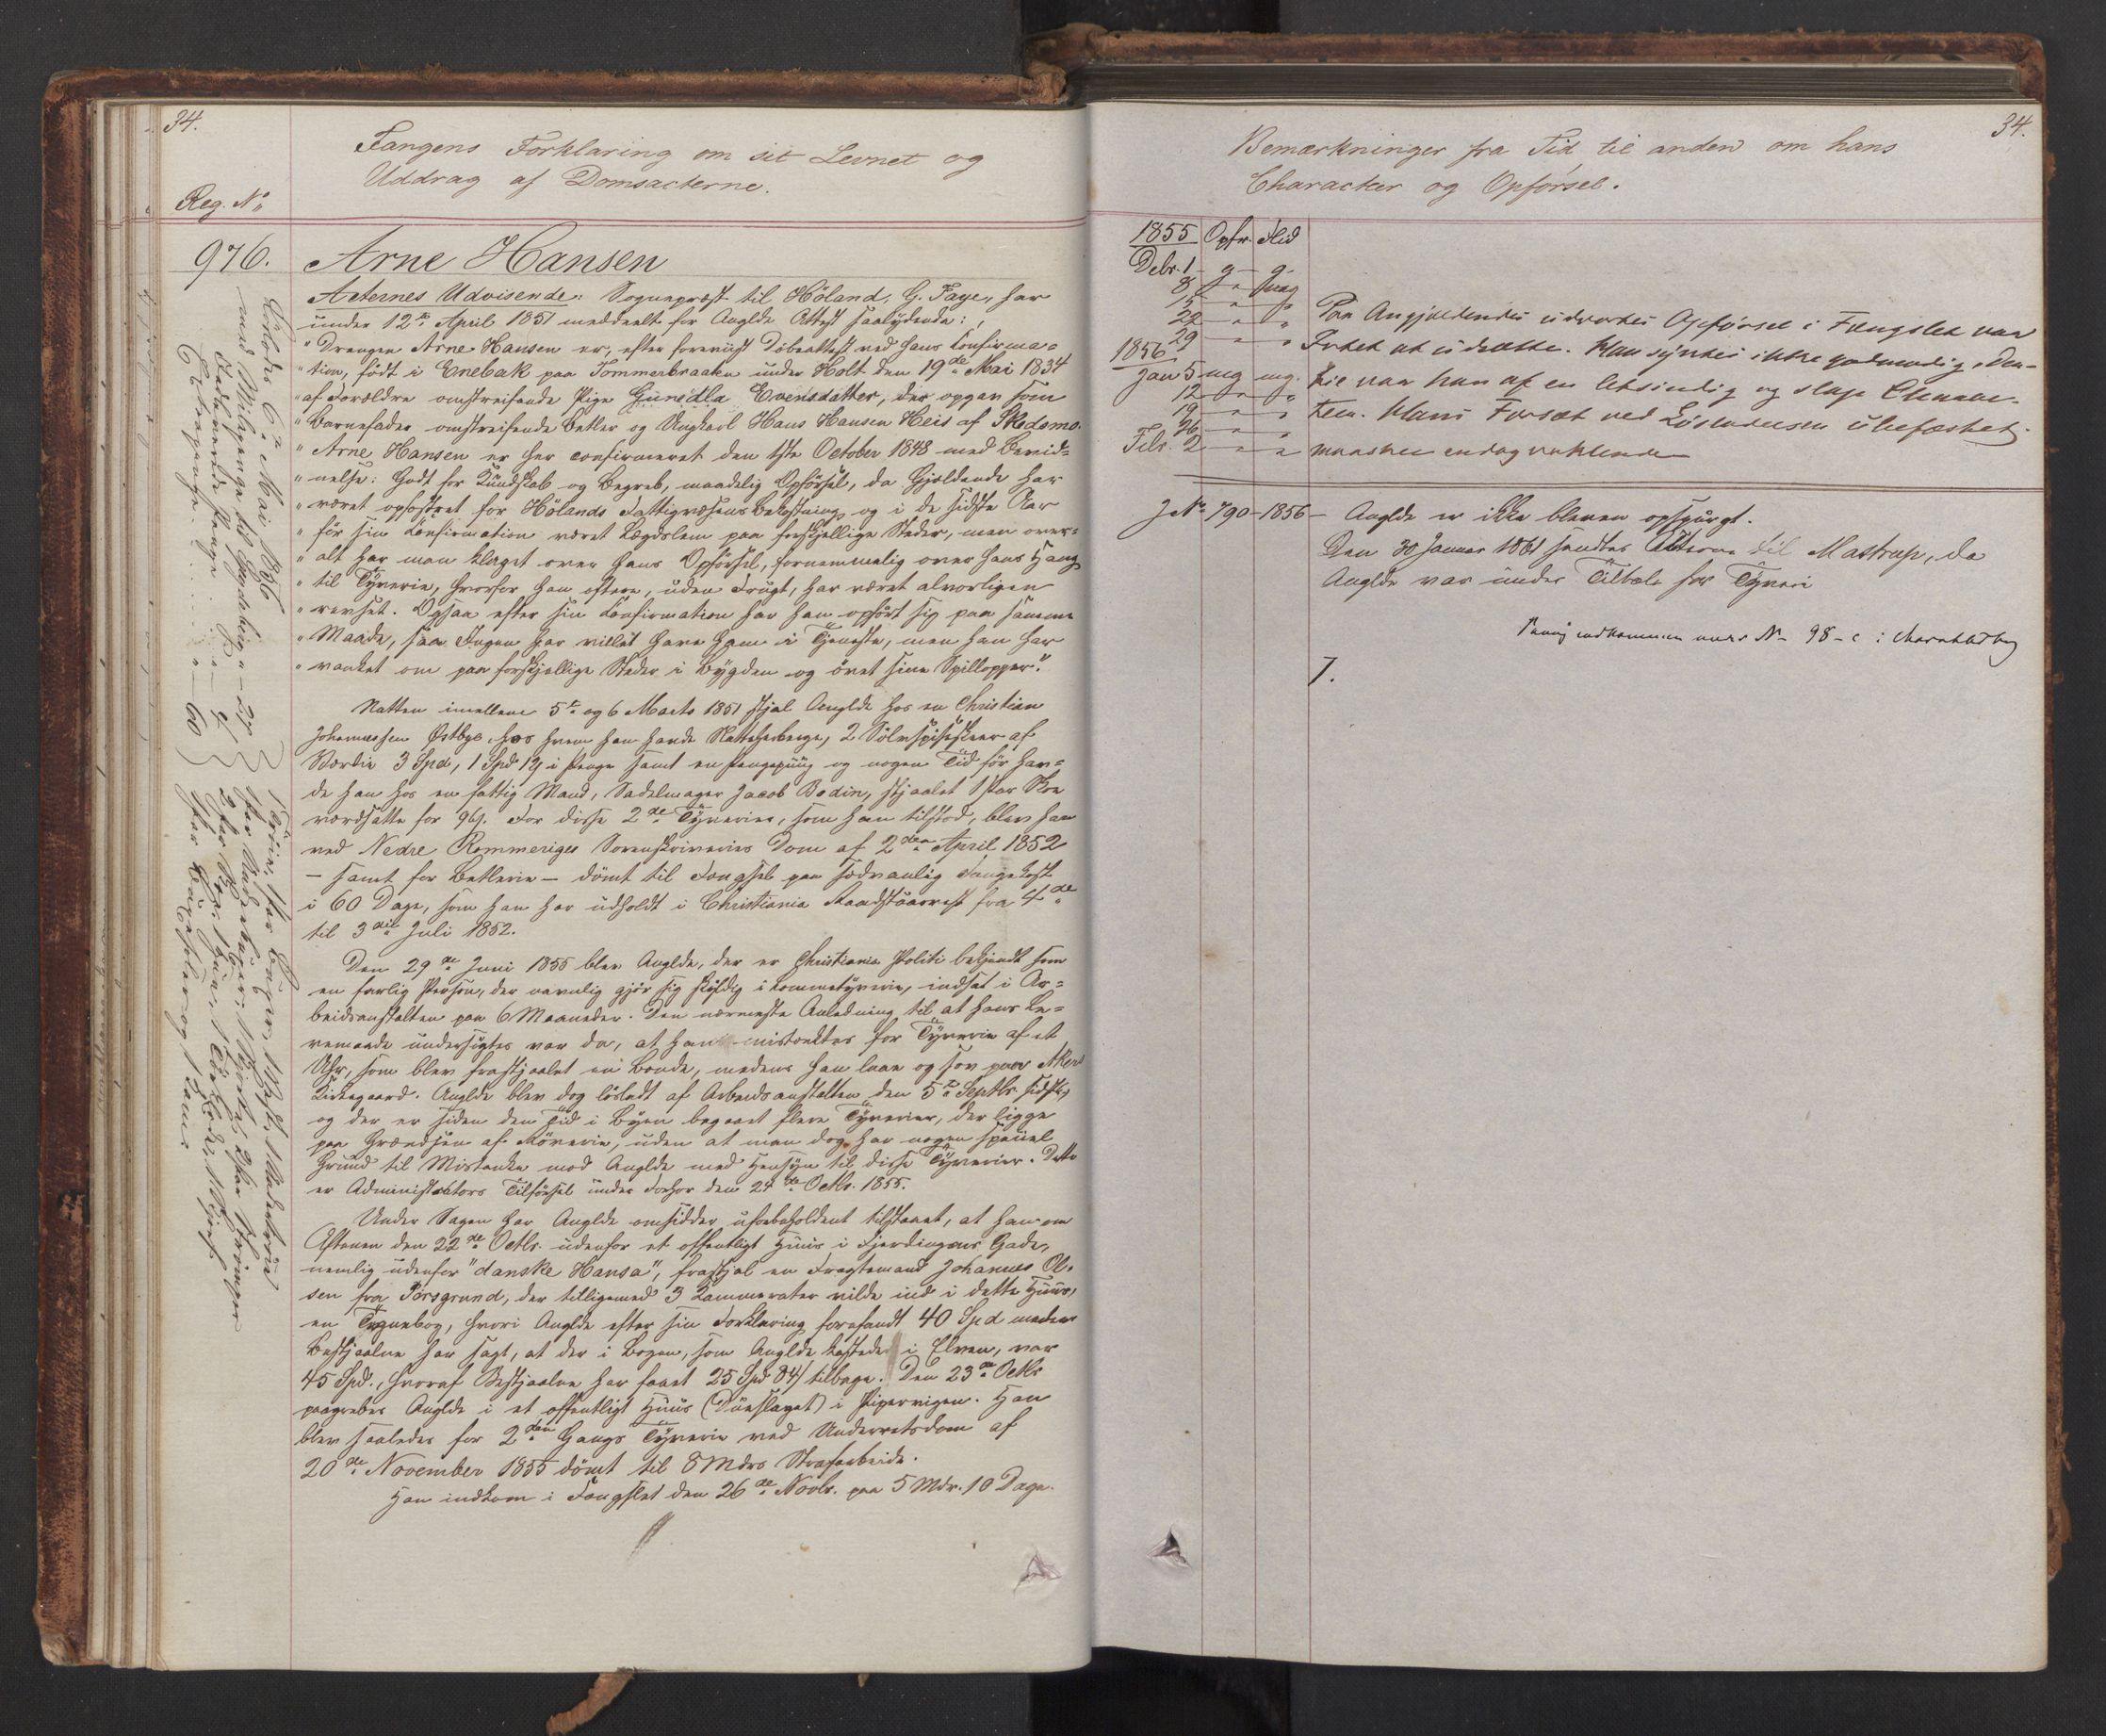 34.
Fangens Forklaring om sit Levnet og
Uddrag af Domsacterne.
Reg. No
976.
Arne Hansen
Acternes Udvisende: Sognepræst til Höland, G. Faye, har
under 12te April 1851 meddeelt for Anglde Attest saalydende:
"Drengen Arne Hansen er, efter foreviist Döbeattest ved hans Confirma=
"tion, födt i Enebak paa Tommerbraaten under Holt den 19de Mai 1834
"af Forældre omstreifende Pige Gunilda Evensdatter, der opgav som
"Barnefader omstreifende Betler og Ungkarl Hans Hansen Heis af Skedsmo.
"Arne Hansen er her confirmeret den 1ste October 1848 med Bevid=
"nelse: Godt for Kundskab og Begreb, maadelig Opförsel, da Gjeldende har
"været opfostret for Hölands Fattigvæsens Bekostning og i de sidste Aar
"för sin Confirmation været Lægdslem paa forskjellige Steder, men over=
"alt har man klaget over hans Opförsel, fornemmelig over hans Hang
"til Tyverie, hvorfor han oftere, uden Frugt, har været alvorligen
"revset. Ogsaa efter sin Confirmation har han opfört sig paa samme
"Maade, saa Ingen har villet have ham i Tjeneste, men han har
"vanket om paa forskjellige Steder i Bygden og övet sine Spillopper".
Natten imellem 5te og 6 Marts 1851 stjal Anglde hos en Christian
Johannessen Østbye, hos hvem han havde Natteherberge, 2 Sölvspiseskeer af
Værdie 3 Spd, 1 Spd 12 s i Penge samt en Pengepung og nogen Tid för hav=
de han hos en fattig Mand, Sadelmager Jacob Bodin, stjaalet 1 Par Skoe
værdsatte for 96 s. For disse 2de Tyverier, som han tilstod, blev han
ved Nedre Rommeriges Sorenskriveries Dom af 2den April 1852
- samt for Betlerie - dömt til Fængsel paa sædvanlig Fangekost
i 60 Dage, som han har udholdt i Christiania Raadstuarrest fra 4de
til 3die Juli 1852.
Den 29de Juni 1855 blev Anglde, der er Christiania Politi bekjendt som
en farlig Person, der navnlig gjör sig skyldig i Lommetyverie, indsat i Ar=
beidsanstalten paa 6 Maaneder. Den nærmeste Anledning til at hans Le=
vemaade undersögtes var da, at han mistænktes for Tyverie af et
Uhr, som blev frastjaalet en Bonde, medens han laae og sov paa Akers
Kirkegaard. Anglde blev dog lösladt af Arbeidsanstalten den 5te Septbr. sidstl.,
og der er siden den Tid i Byen begaaet flere Tyverier, der ligge
paa Grændsen af Röverie, uden at man dog har nogen speciel
Grund til Mistanke mod Anglde med Hensyn til disse Tyverier. Dette
er Administrators Tilförsel under Forhör den 24de Octbr. 1855.
Under Sagen har Anglde omsidder uforbeholdent tilstaaet, at han om
Aftenen den 22de Octbr. udenfor et offentligt Huus i Fjerdingens Gade,
nemlig udenfor "danske Hansa", frastjal en Fragtemand Johannes Ol=
sen fra Porsgrund, der tilligemed 3 Kammerater vilde ind i dette Huus,
en Tegnebog, hvori Anglde efter sin Forklaring forefandt 40 Spd medens
Bestjaalne har sagt, at der i Bogen, som Anglde kastede i Elven, var
45 Spd., hvoraf Bestjaalne har faaet 25 Spd 84 s tilbage. Den 23de Octbr
paagrebes Anglde i et offentligt Huus (Dueslaget) i Pipervigen. Han
blev saaledes for 2den Gangs Tyverie ved Underretsdom af
20de November 1855 dömt til 8 Mdrs Strafarbeide.
Han indkom i Fængslet den 26de Novbr. paa 5 Mdr. 10 Dage.
Löslodes 6te Mai 1856
med Udpenge
Indleverede Penge
1 Par Buxer, 1 Vest,
34.
Bemærkninger fra Tid til anden om hans
Character og Opförsel.
1855 Opför. Flid
Debr. 1 g g
8 " mg
15 " "
22 " "
29 " "
1856
Jan 5 mg mg.
12 " "
19 " "
26 " "
Febr. 2 " "
Paa Angjældendes udvortes Opförsel i Fængslet var
Intet at udsætte. Han syntes ikke godmodig. Der=
hos var han af en letsindig og slap Charac=
teer. Hans Forsæt ved Löslatelsen ubefæstet
maaskee endog vaklende
J. No 790 - 1856 - Anglde er ikke bleven opspurgt.
Den 30 Januar 1861 sendtes Acterne til Mastrup, da
Anglde var under Tiltale for Tyveri
Paany indkommen under No 98 - c i Characterbog
7.